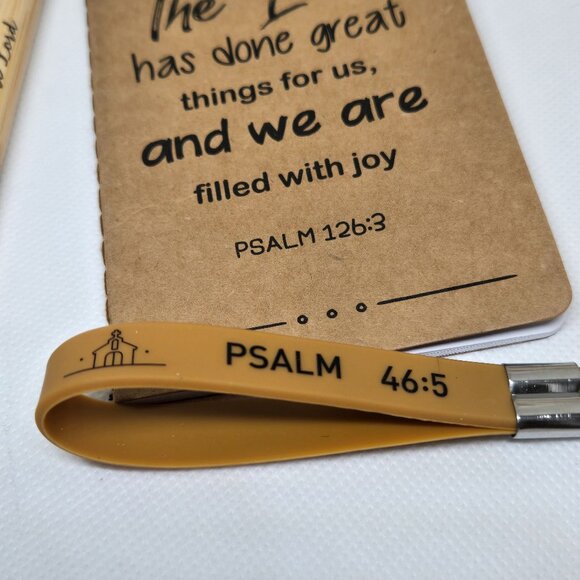 The
has done great
things for us,
and we are
filled with joy
PSALM 126:3
PSALM 46:5
Lord